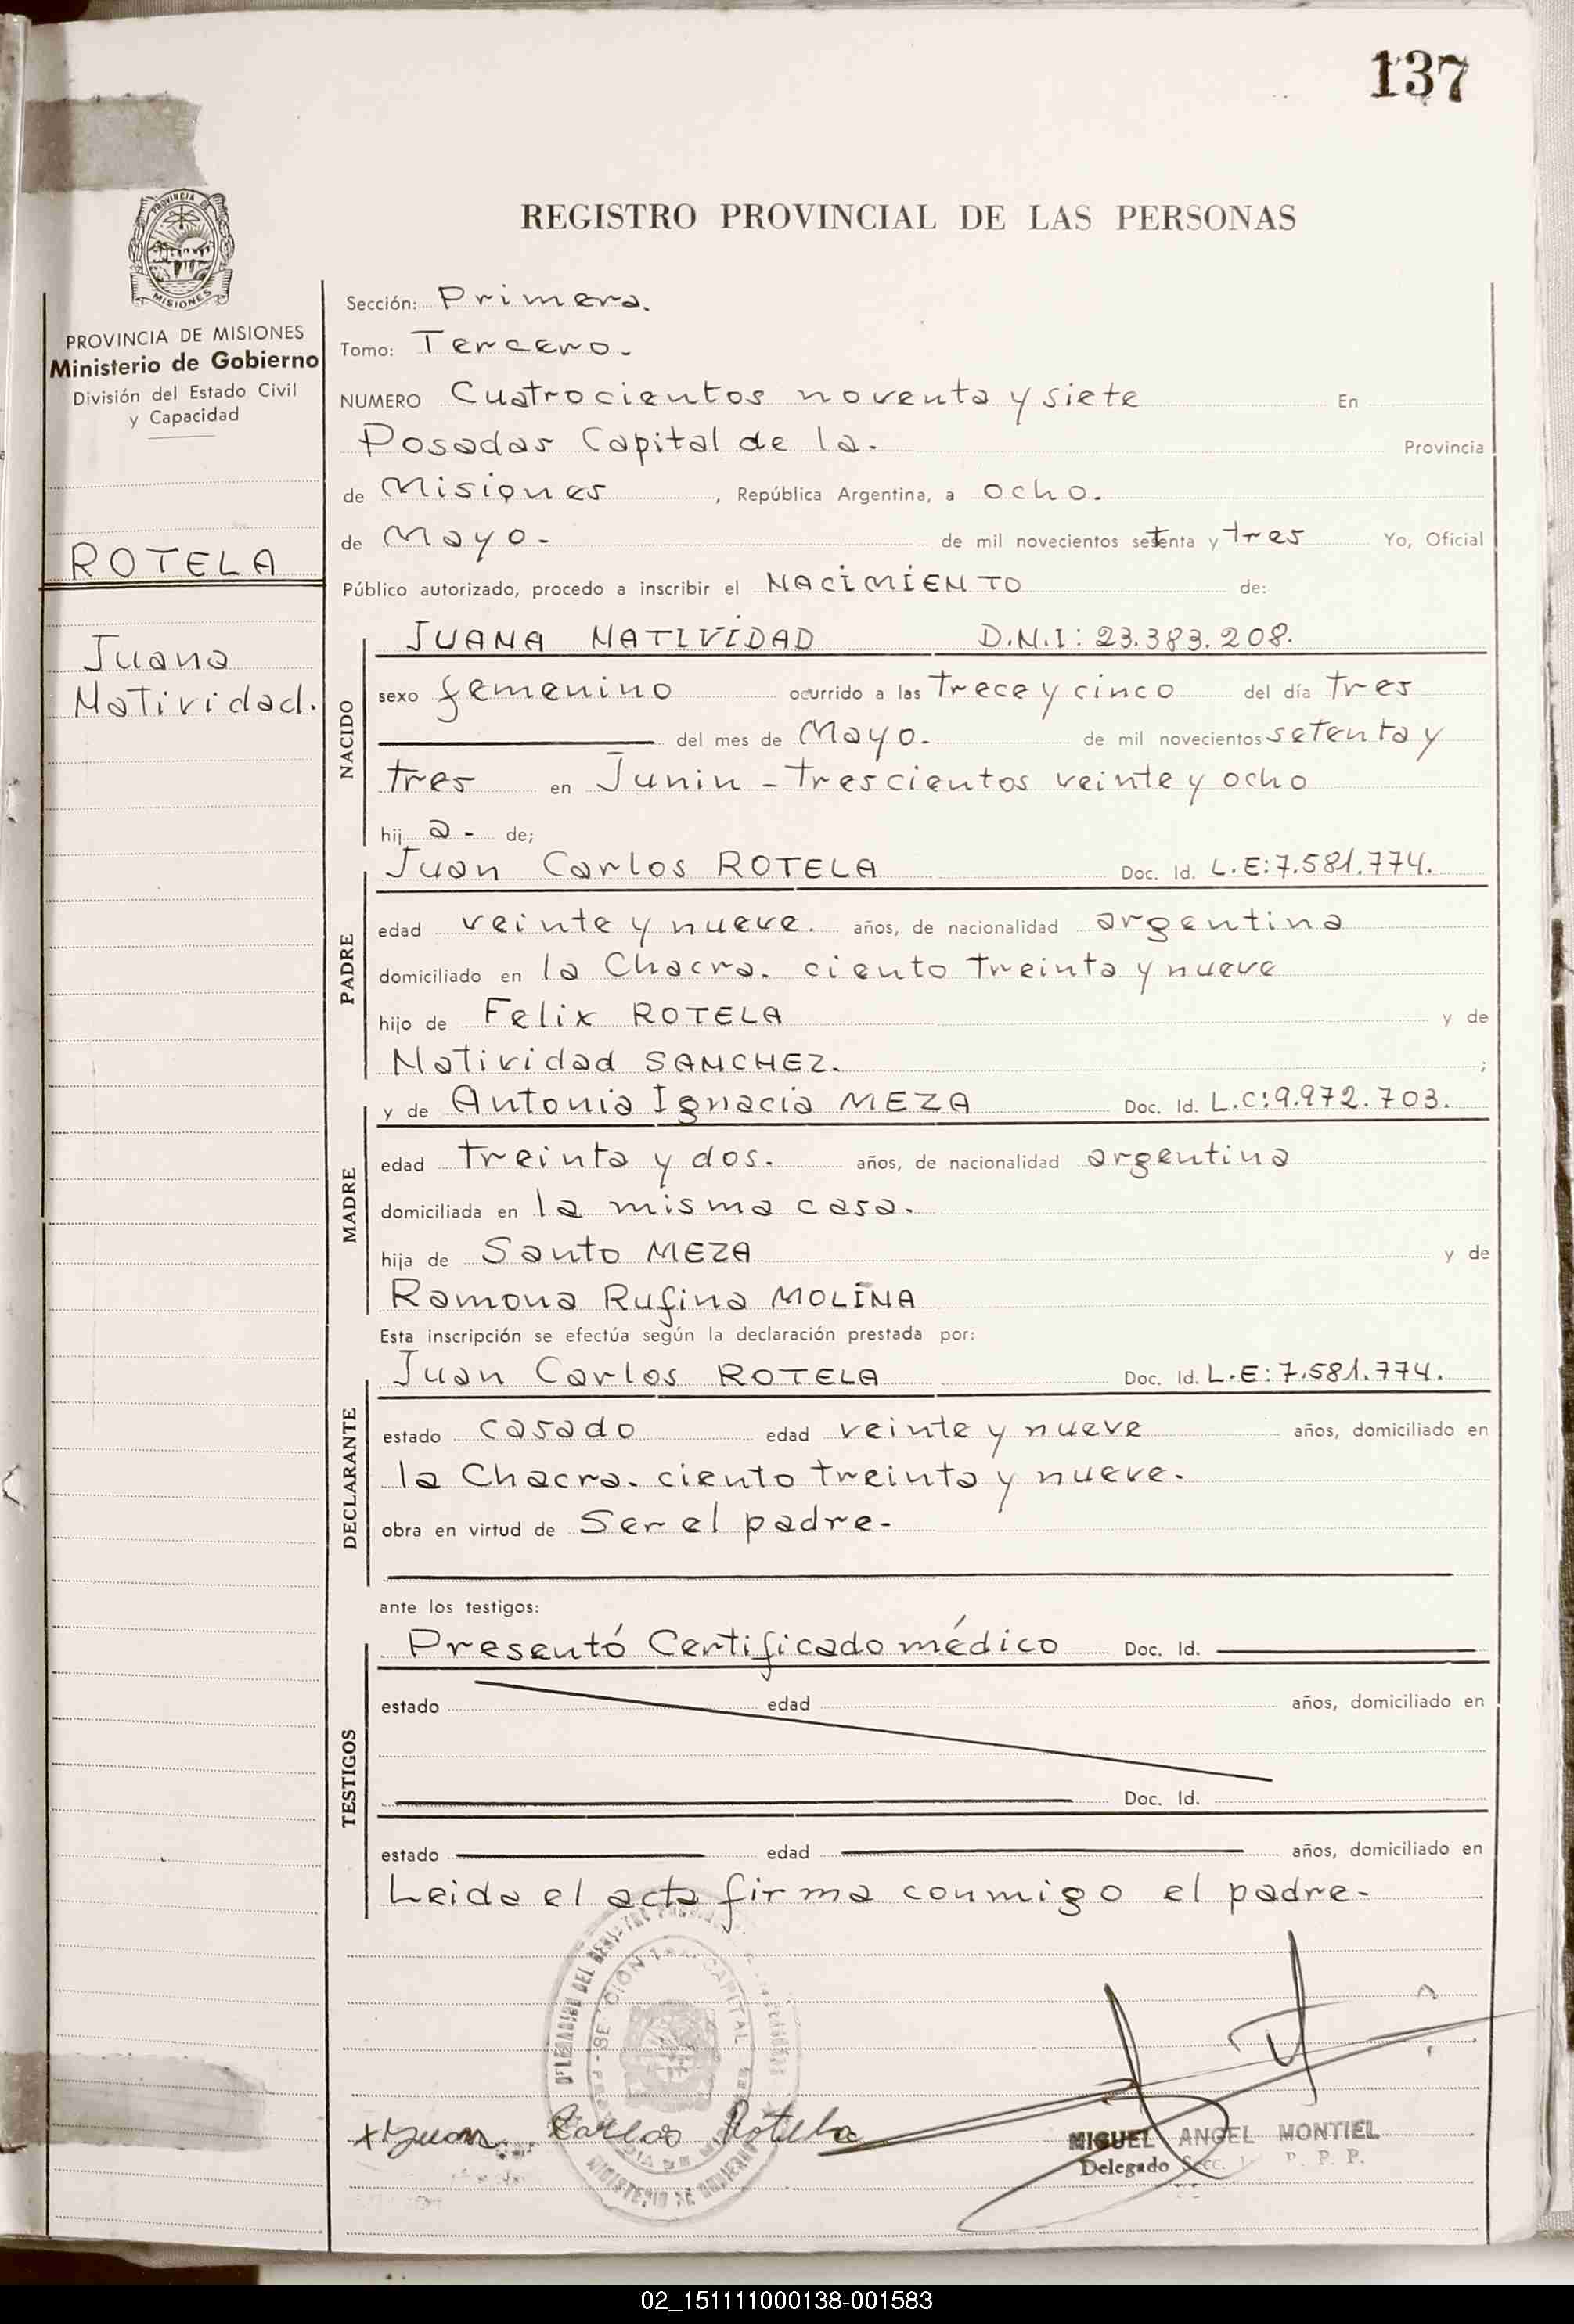 137
REGISTRO PROVINCIAL DE LAS PERSONAS
PROVINCIA DE MISIONES
PROVINCIA DE MISIONES
Ministerio de Gobierno
División del Estado Civil
y Capacidad
ROTELA
Juana
Natividad.
Sección: Primera.
Tomo: Tercero.
NUMERO Cuatrocientos noventa y siete En
Posadas Capital de la. Provincia
de Misiones, República Argentina, a ocho.
de Mayo. de mil novecientos setenta y tres Yo, Oficial
Público autorizado, procedo a inscribir el NACIMIENTO de:
NACIDO
JUANA NATIVIDAD D.N.I: 23.383.208.
sexo femenino ocurrido a las trece y cinco del día tres
del mes de Mayo. de mil novecientos setenta y
tres en Junin - trescientos veinte y ocho
hij a- de;
PADRE
Juan Carlos ROTELA Doc. Id. L.E:7.581.774.
edad veinte y nueve. años, de nacionalidad argentina
domiciliado en la Chacra. ciento treinta y nueve
hijo de Felix ROTELA y de
Natividad SANCHEZ. ;
MADRE
y de Antonia Ignacia MEZA Doc. Id. L.C:9.972.703.
edad treinta y dos. años, de nacionalidad argentina
domiciliada en la misma casa.
hija de Santo MEZA y de
Ramona Rufina MOLINA
Esta inscripción se efectúa según la declaración prestada por:
DECLARANTE
Juan Carlos ROTELA Doc. Id. L.E:7.581.774.
estado casado edad veinte y nueve años, domiciliado en
la Chacra. ciento treinta y nueve.
obra en virtud de Ser el padre-
ante los testigos:
TESTIGOS
Presentó Certificado médico Doc. Id.
estado edad años, domiciliado en
Doc. Id.
estado edad años, domiciliado en
Leida el acta firma conmigo el padre-
x Juan Carlos Rotela
MIGUEL ANGEL MONTIEL
Delegado Secc.
02_151111000138-001583